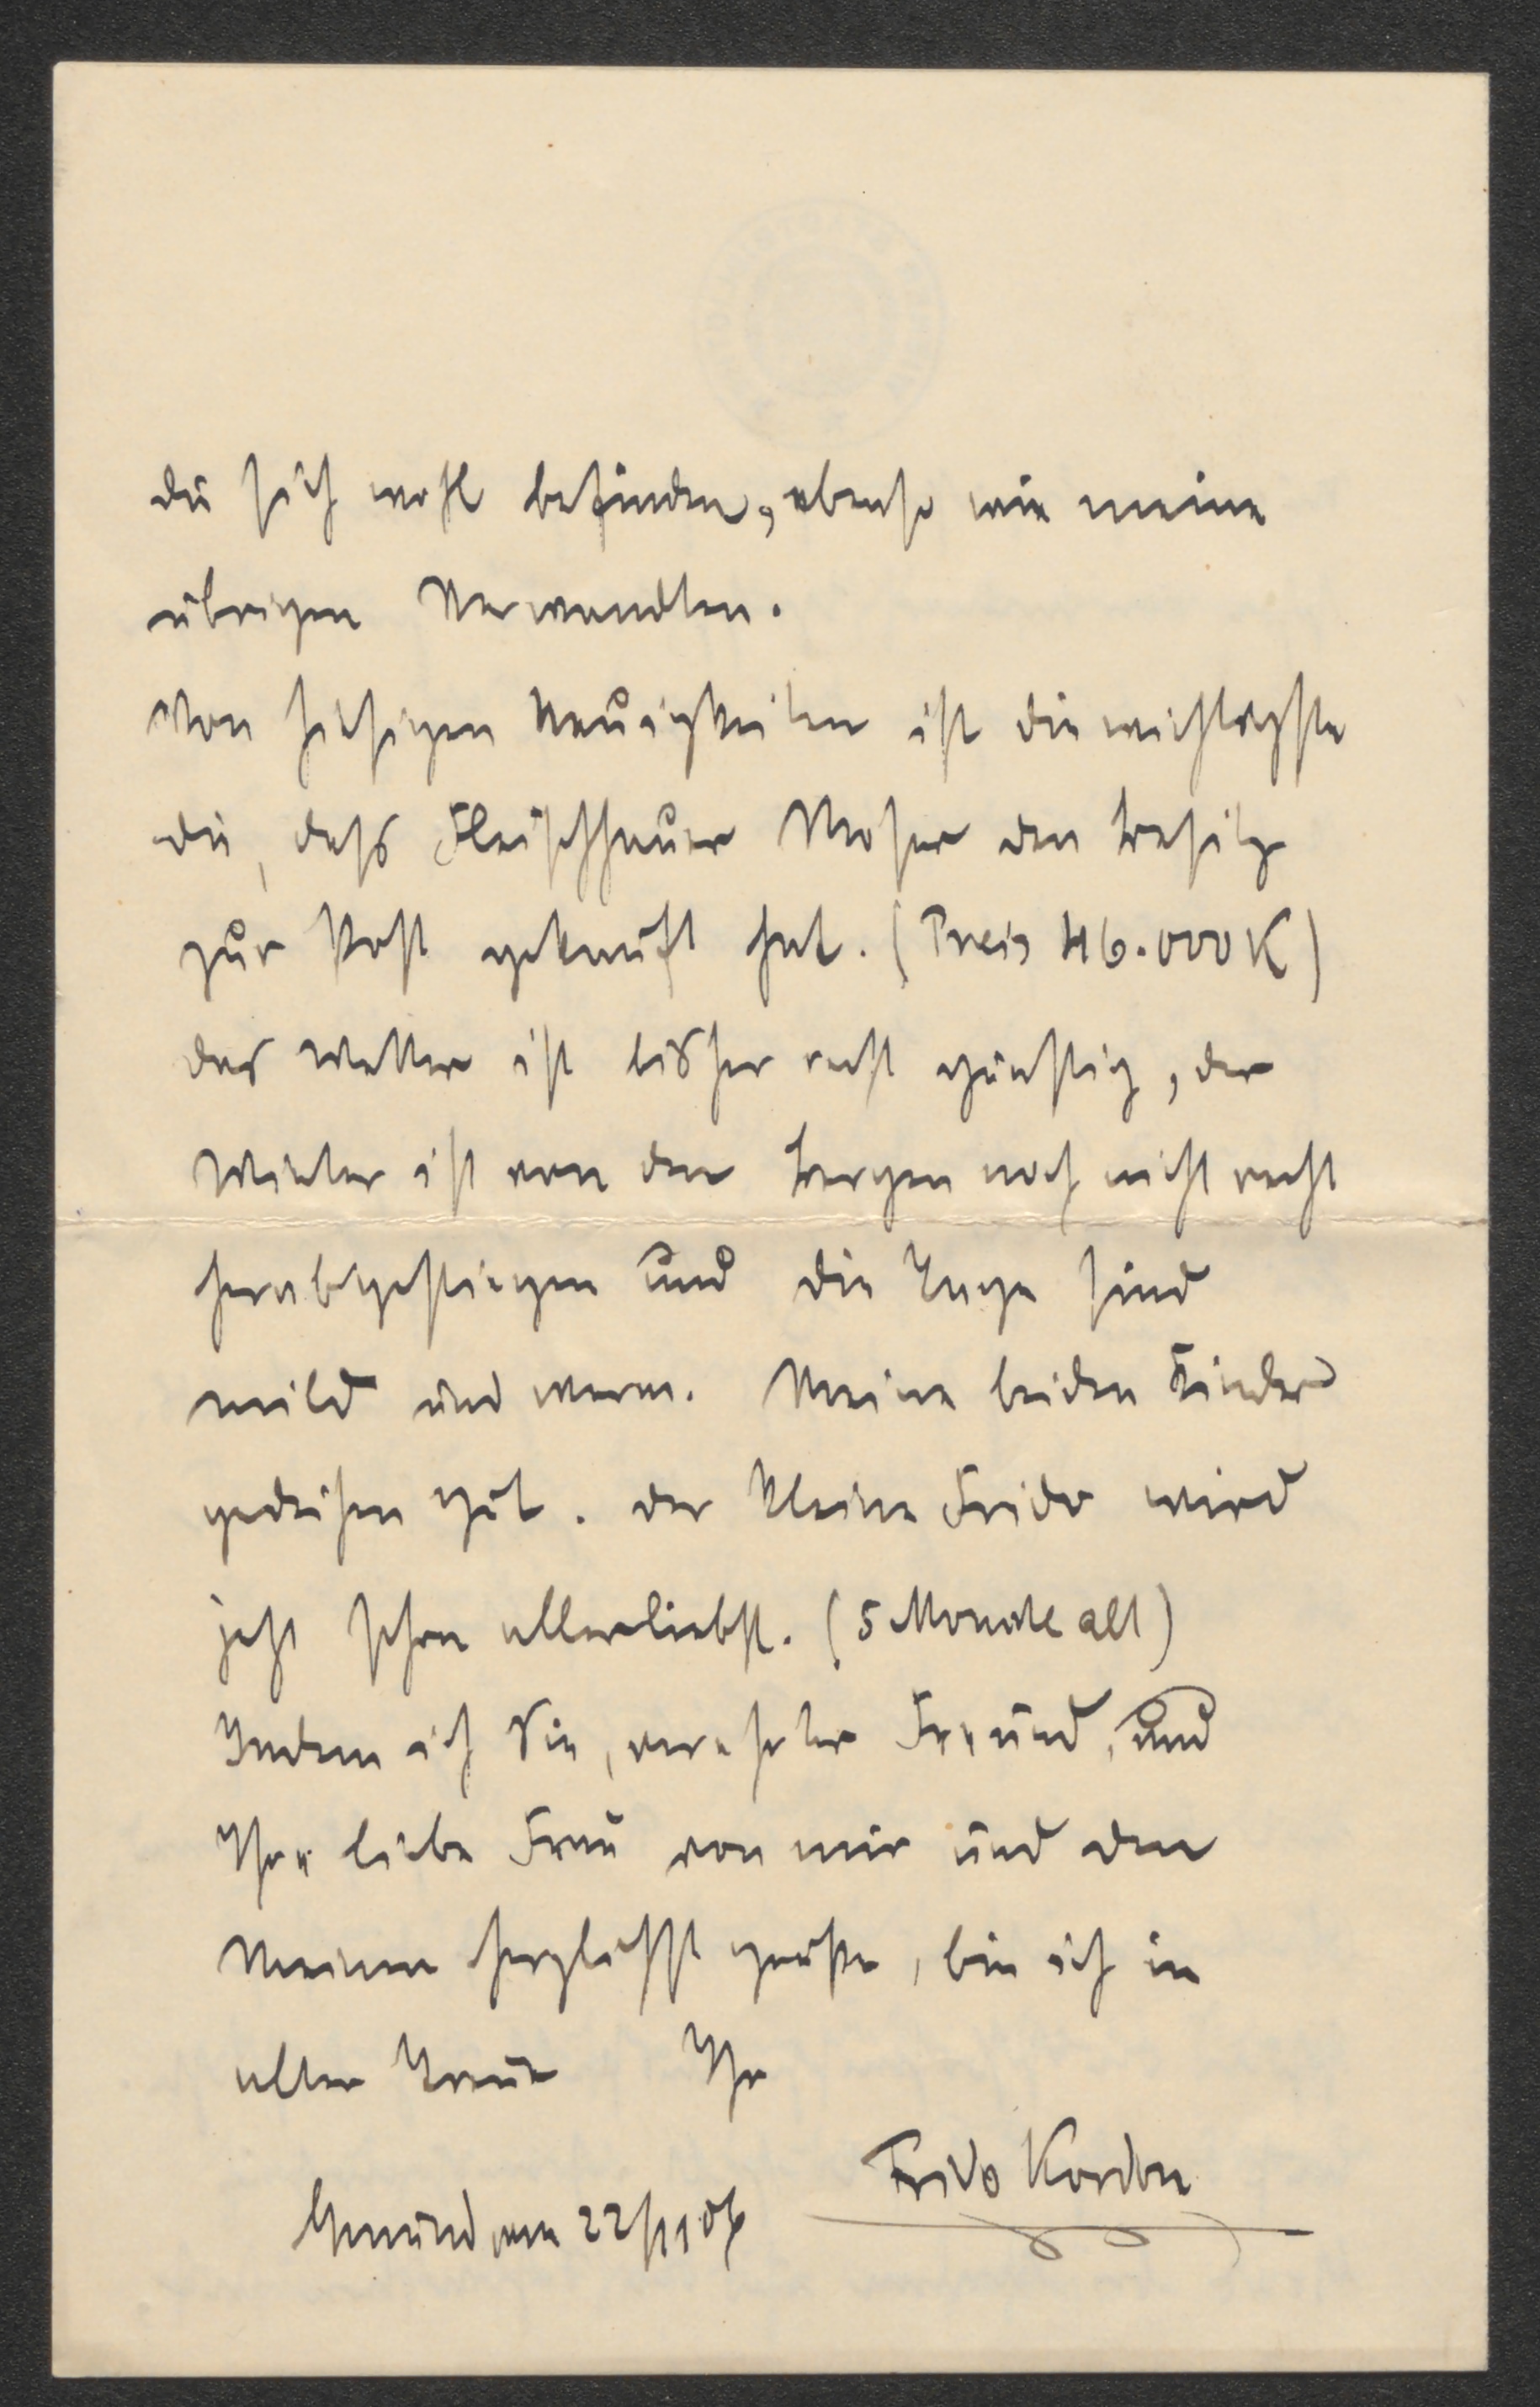 die sich wohl befinden, ebenso wie meine
übrigen Verwandten.
Von hiesigen Neuigkeiten ist die wichtigste
die, dass Fleischhauer Moser den Besitz
zur Post gekauft hat. (Preis 46.000 K)
das Wetter ist bisher recht günstig, der
Winter ist von den Bergen noch nicht recht
herabgestiegen und die Tage sind
mild und warm. Meine beiden Kinder
gedeihen gut. der kleine Frido wird
jetzt schon allerliebst. (5 Monate alt)
Indem ich Sie, verehrter Freund, und
Ihre liebe Frau von mir und den
Meinen herzlichst grüße, bin ich in
alter Treue Ihr
Frido Kordon
Gmünd am 22/11 06